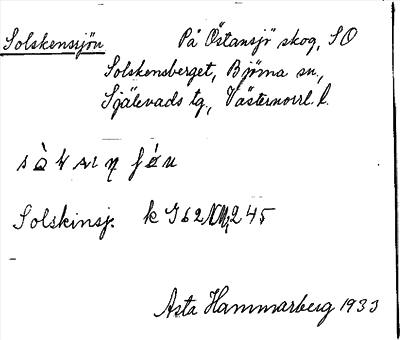 Solskenssjön På Östansjö skog, SO
Solskensberget, Björna sn.,
Själevads tg., Västernorrl. l.
Solskinsj. k 962 NV, 245
Asta Hammarberg 1933